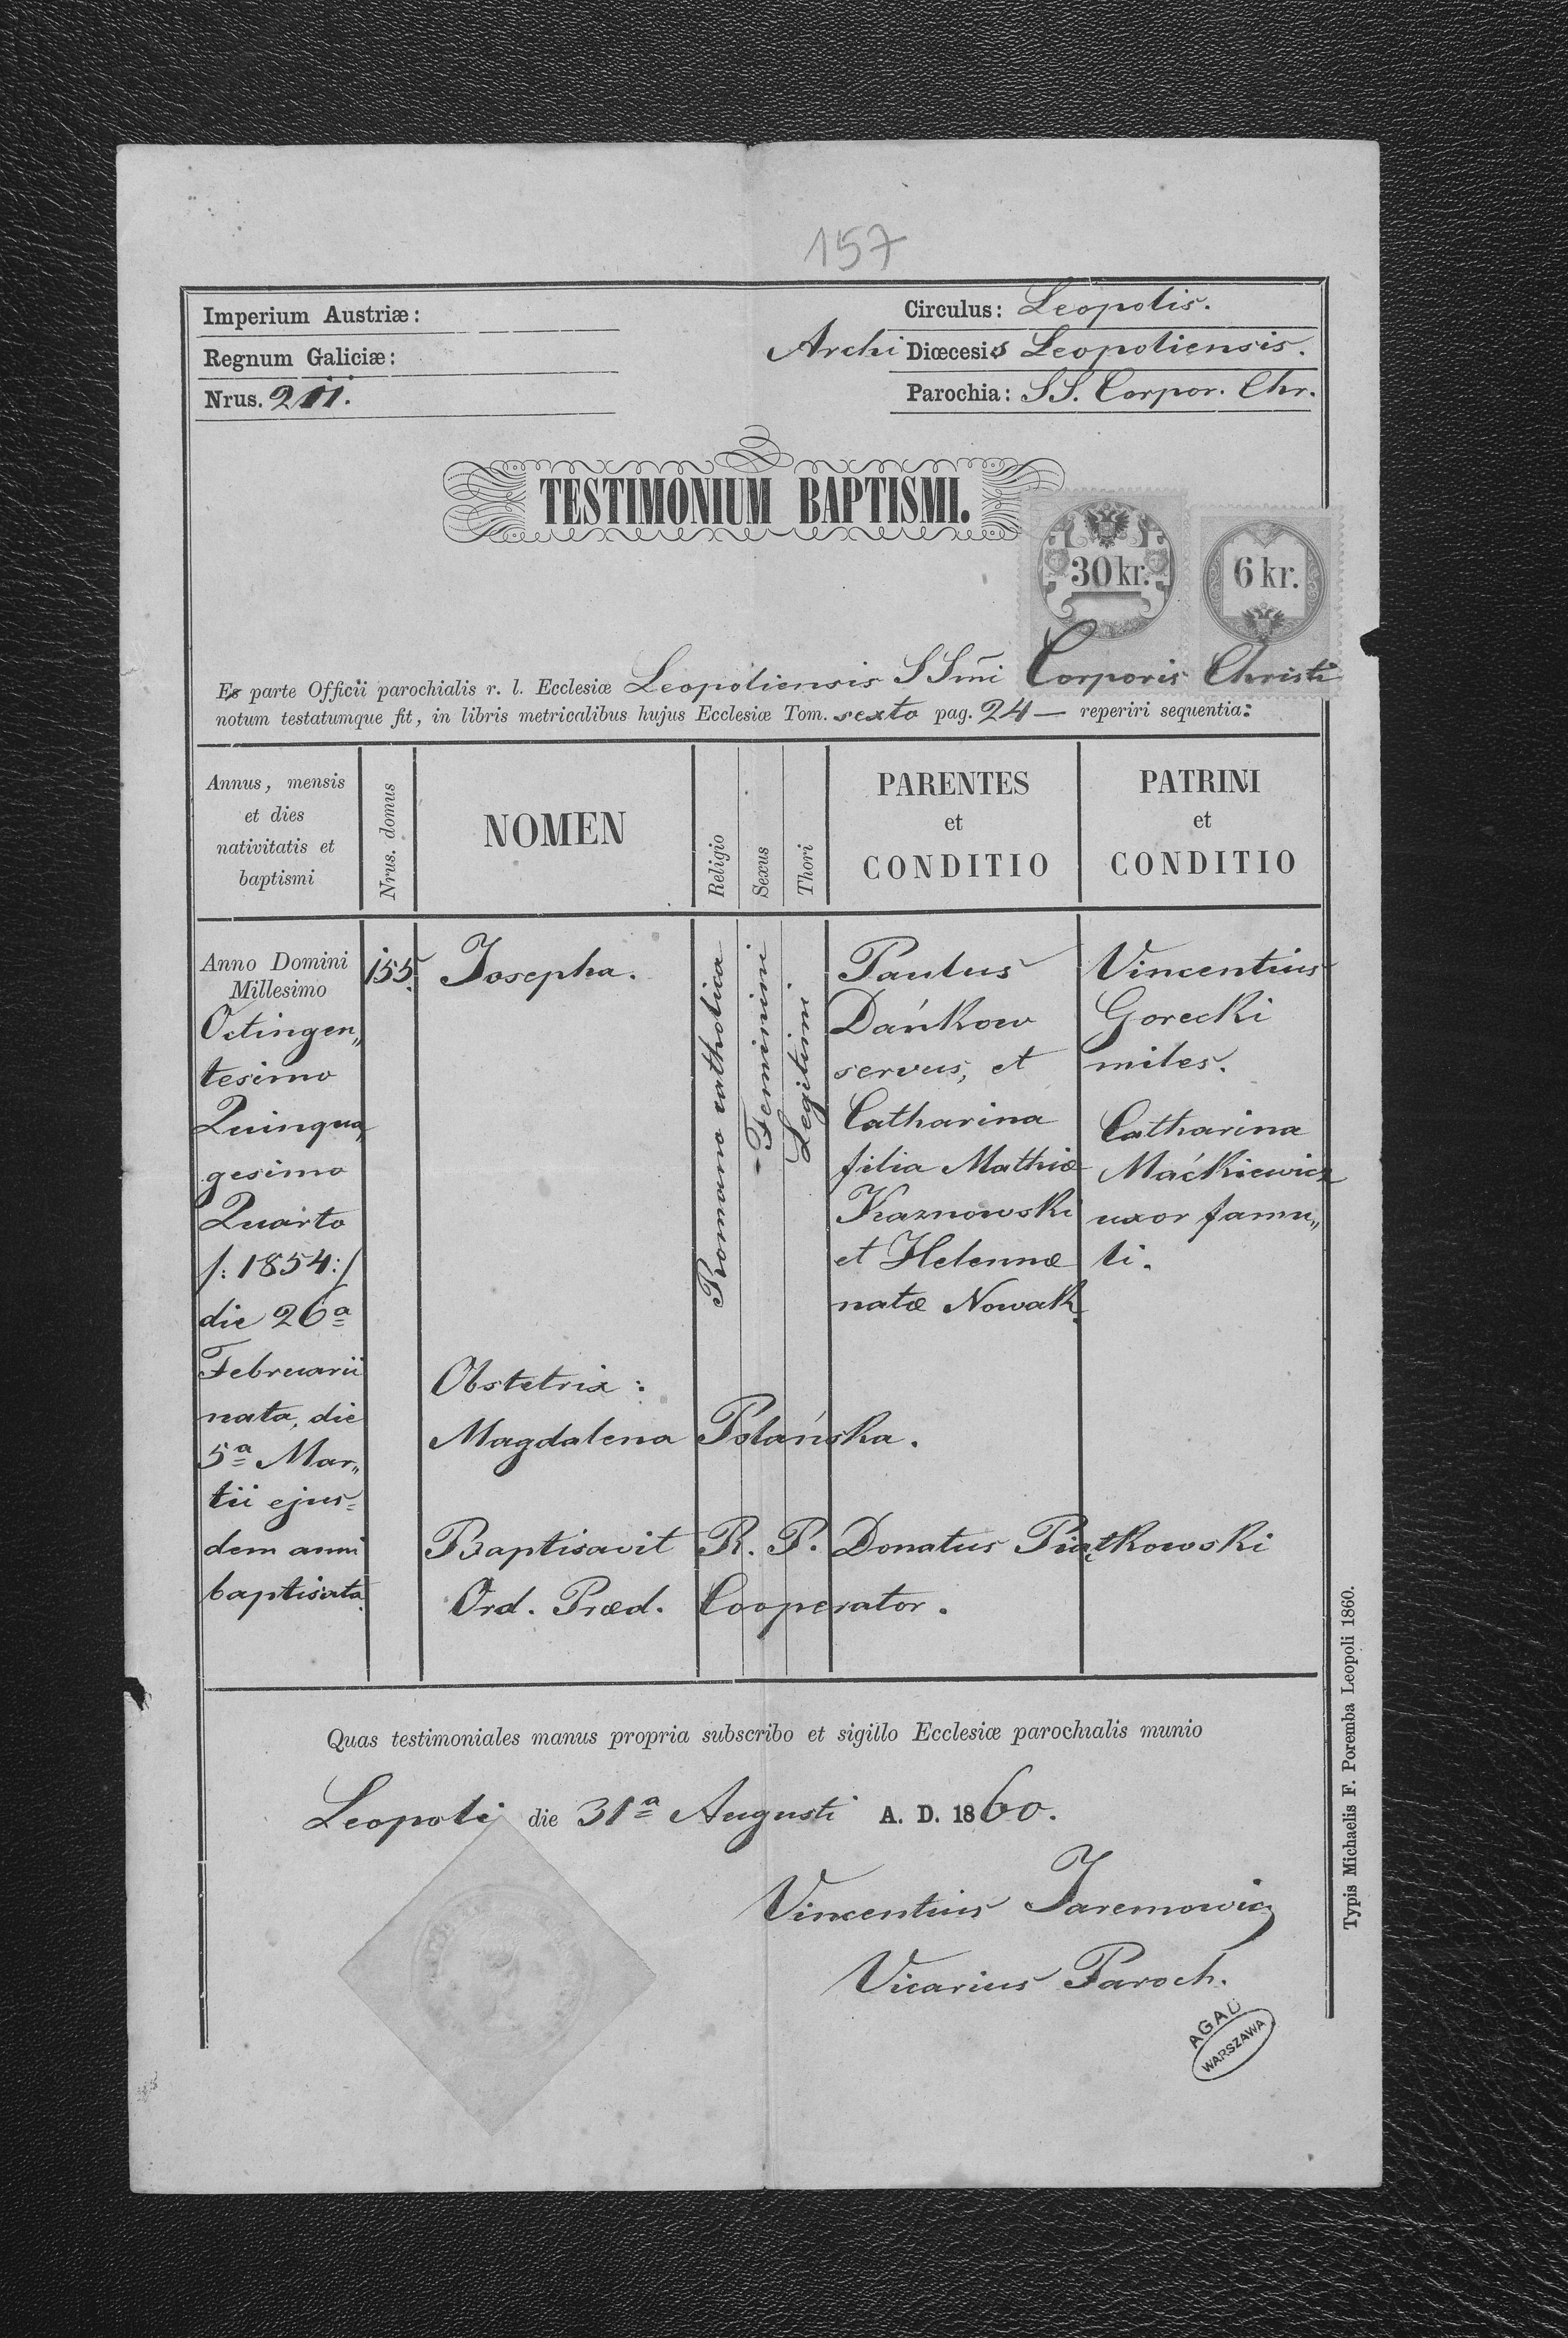 157
Imperium Austriæ:
Regnum Galiciæ:
Nrus. 211.
Circulus: Leopolis.
Archi Diœcesis Leopoliensis.
Parochia: SS. Corpor. Chr.
TESTIMONIUM BAPTISMI.
30 kr.
6 kr.
Ex parte Officii parochialis r. l. Ecclesiæ Leopoliensis SSmi Corporis Christi
notum testatumque fit, in libris metricalibus hujus Ecclesiæ Tom. sexto pag. 24 — reperiri sequentia:
Annus, mensis
et dies
nativitatis et
baptismi
Nrus. domus
NOMEN
Religio
Sexus
Thori
PARENTES
et
CONDITIO
PATRINI
et
CONDITIO
Anno Domini
Millesimo
Octingen„
tesimo
Quinqua
gesimo
Quarto
/: 1854 :/
die 26a
Februarii
nata, die
5a Mar„
tii ejus=
dem anni
baptisata.
155.
Josepha.
Romano catholica
Feminini
Legitimi
Paulus
Dańkow
servus, et
Catharina
filia Mathiæ
Kaznowski
et Helennæ
natæ Nowak.
Vincentius
Gorecki
miles.
Catharina
Maćkiewicz
uxor famu„
li.
Obstetrix :
Magdalena Polańska.
Baptisavit R. P. Donatus Piątkowski
Ord. Præd. Cooperator.
Quas testimoniales manus propria subscribo et sigillo Ecclesiæ parochialis munio
Leopoli die 31a Augusti A. D. 1860.
Vincentius Jaremowicz
Vicarius Paroch.
AGAD
WARSZAWA
Typis Michaelis F. Poremba Leopoli 1860.